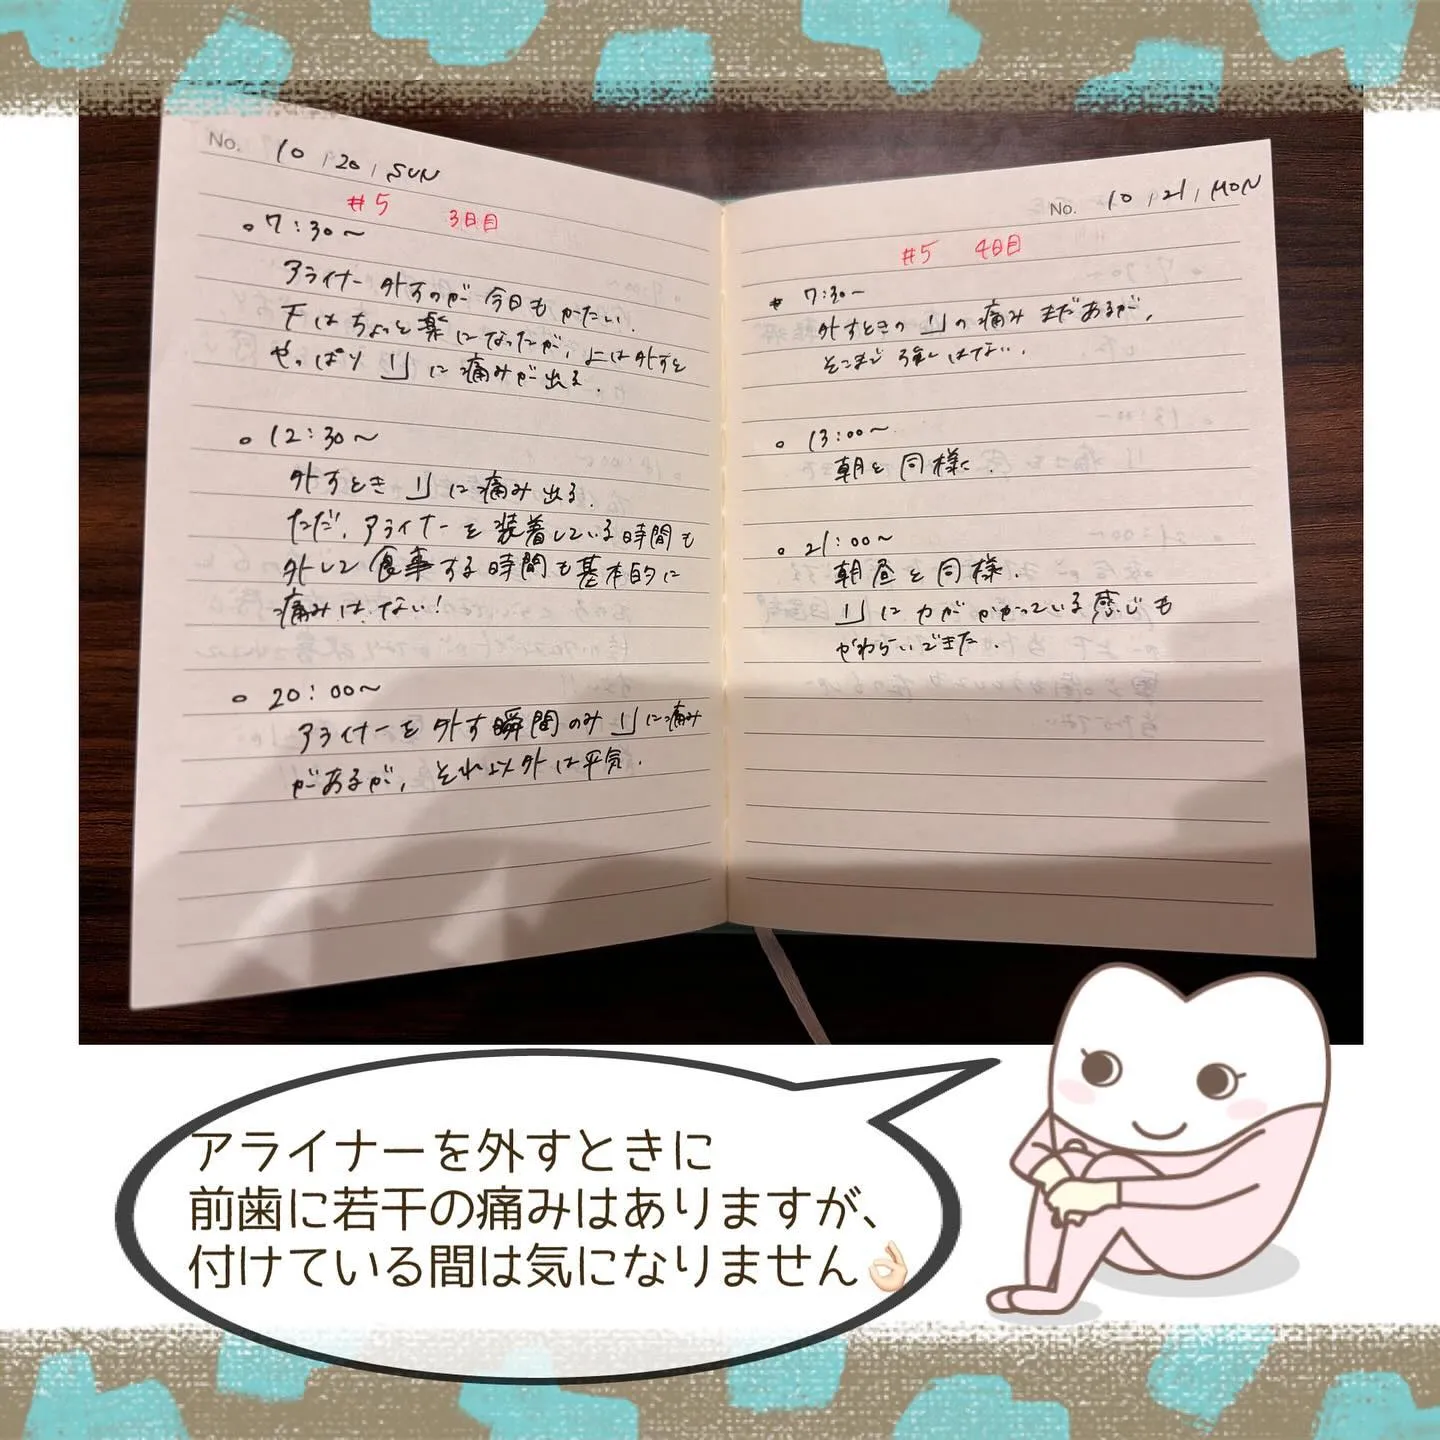 No. 10 , 20 , SUN
#5 3日目
○ 7:30〜
アライナー外すのが今日もかたい.
下はちょっと楽になったが, 上は外すと
やっぱり 1| に痛みが出る.
○ 12:30〜
外すとき 1| に痛み出る.
ただ, アライナーを装着している時間も
外して食事する時間も基本的に
痛みは.ない!
○ 20:00〜
アライナーを外す瞬間のみ 1| に痛み
があるが, それ以外は平気.
No. 10 , 21 , MON
#5 4日目
7:30〜
外すときの 1| の痛みまだあるが,
そこまで強くはない.
○ 13:00〜
朝と同様に.
○ 21:00〜
朝昼と同様.
1| に力がかかっている感じも
やわらいできた.
アライナーを外すときに
前歯に若干の痛みはありますが、
付けている間は気になりません👌🏻